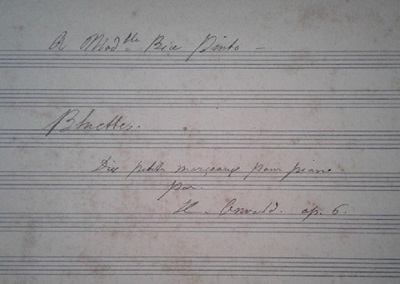 A Mad^lle Bice Pinto —
Bluettes.
Dix petits morceaux pour piano
par
H. Oswald. op. 6.